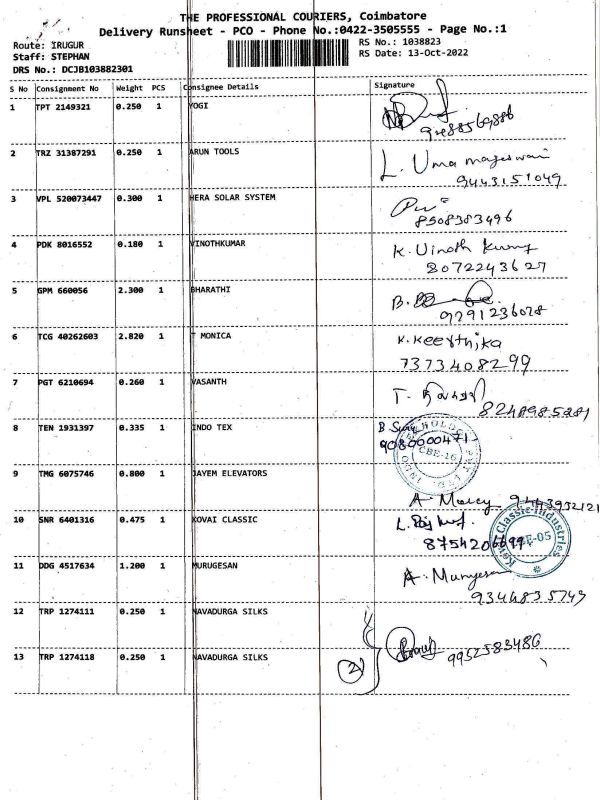 THE PROFESSIONAL COURIERS, Coimbatore
Delivery Runsheet - PCO - Phone No.:0422-3505555 - Page No.:1
Route: IRUGUR
RS No.: 1038823
Staff: STEPHAN
RS Date: 13-Oct-2022
DRS No.: DCJB103882301
S No Consignment No Weight PCS Consignee Details Signature
1 TPT 2149321 0.250 1 YOGI
2 TRZ 31387291 0.250 1 ARUN TOOLS L. Uma mageswari
9443151049
3 VPL 520073447 0.300 1 HERA SOLAR SYSTEM
8508383496
4 PDK 8016552 0.180 1 VINOTHKUMAR K. Vinoth Kumar
8072243627
5 GPM 660056 2.300 1 BHARATHI B.
9791236078
6 TCG 40262603 2.820 1 T MONICA K. Keerthika
7373408299
7 PGT 6210694 0.260 1 VASANTH T.
8 TEN 1931397 0.335 1 INDO TEX
9080000471
CBE-16
9 TMG 6075746 0.800 1 JAYEM ELEVATORS A. Marcy 9443952121
10 SNR 6401316 0.475 1 KOVAI CLASSIC L.
Kovai Classic Industries
CBE-05
11 DDG 4517634 1.200 1 MURUGESAN A. Murugesan
9344835743
12 TRP 1274111 0.250 1 NAVADURGA SILKS
13 TRP 1274118 0.250 1 NAVADURGA SILKS 2 9952583486